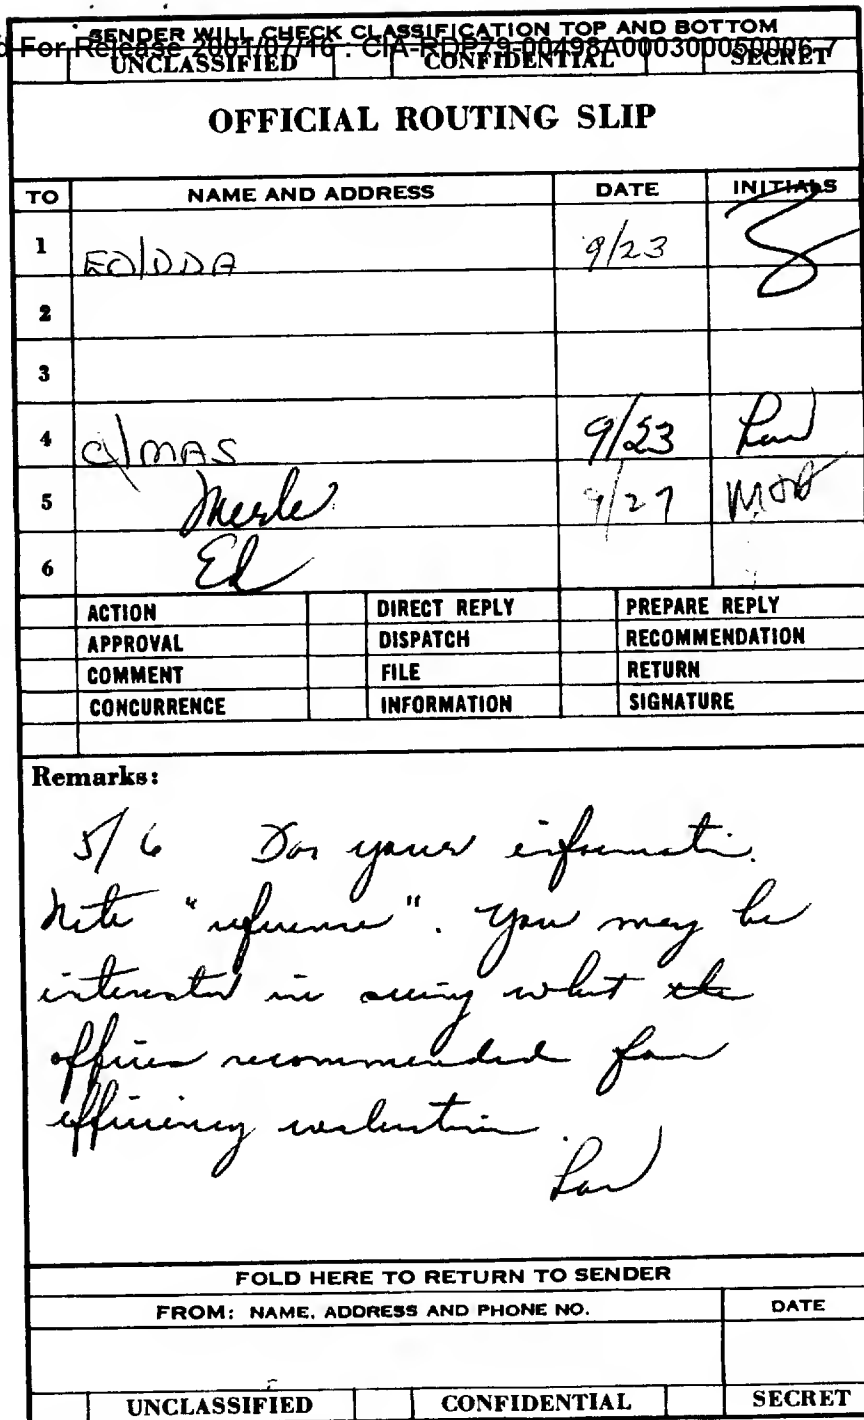 SENDER WILL CHECK CLASSIFICATION TOP AND BOTTOM
d For Release 2001/07/16 : CIA-RDP79-00498A000300050006-7
UNCLASSIFIED CONFIDENTIAL SECRET
OFFICIAL ROUTING SLIP
TO NAME AND ADDRESS DATE INITIALS
1 EO/DDA 9/23
2
3
4 C/MAS 9/23
5 Merle 9/27
6 Ed
ACTION DIRECT REPLY PREPARE REPLY
APPROVAL DISPATCH RECOMMENDATION
COMMENT FILE RETURN
CONCURRENCE INFORMATION SIGNATURE
Remarks:
5/6 For your information.
Note "reference". You may be
interested in seeing what the
offices recommended for
efficiency evaluation.
FOLD HERE TO RETURN TO SENDER
FROM: NAME, ADDRESS AND PHONE NO. DATE
UNCLASSIFIED CONFIDENTIAL SECRET